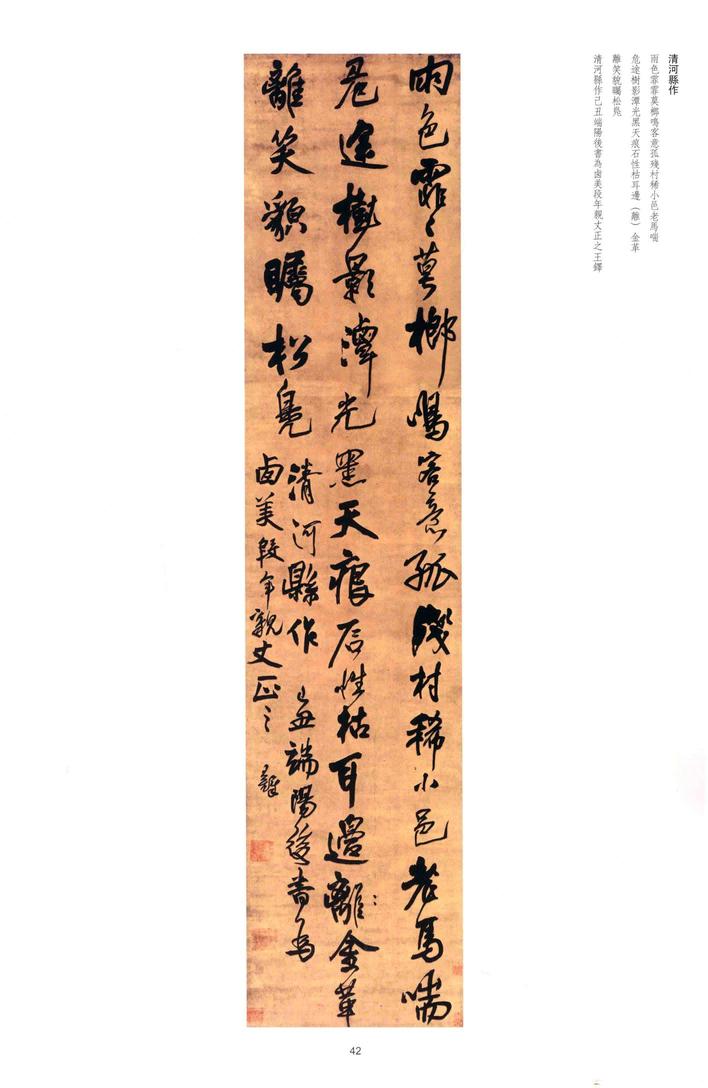 清河縣作
雨色霏霏莫榔鳴客意孤殘村稀小邑老馬喘
危途樹影潭光黑天痕石性枯耳邊（離）金革
離笑貌矚松凫
清河縣作己丑端陽後書為鹵美段年親丈正之王鐸
雨色霏〻莫榔鳴客意孤殘村稀小邑老馬喘
危途樹影潭光黑天痕石性枯耳邊離〻金革
離笑貌矚松凫
清河縣作己丑端陽後書為
鹵美段年親丈正之
42